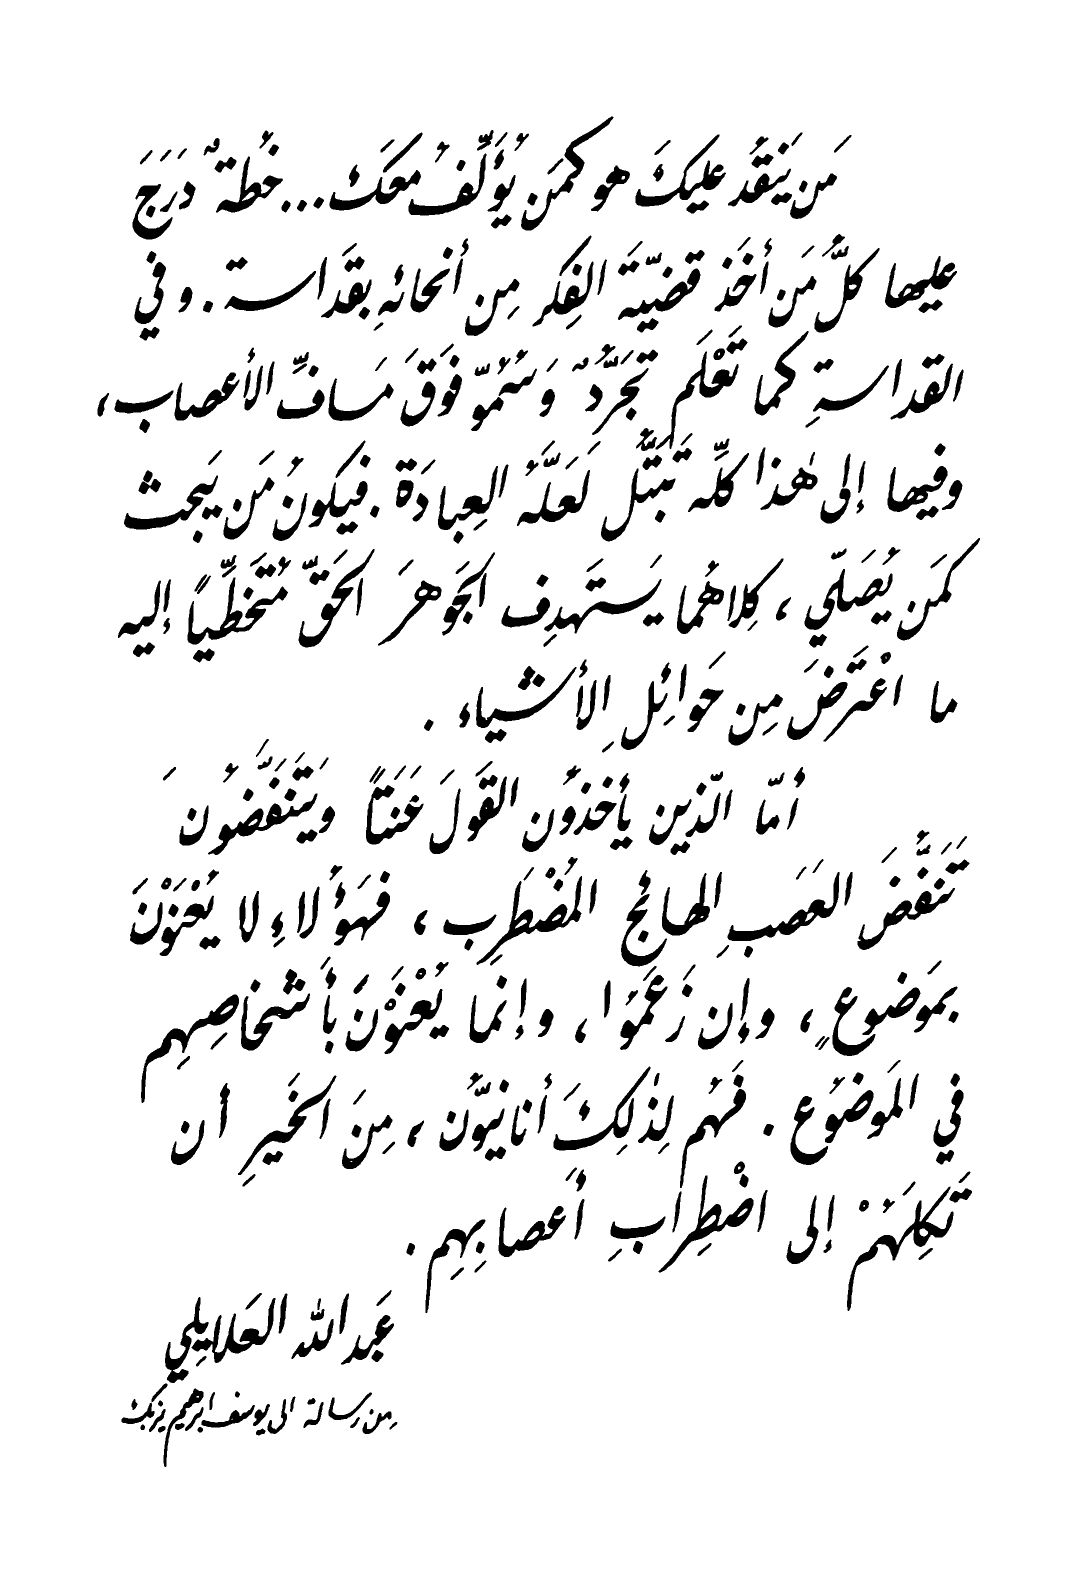 مَن يَنقُد عليكَ هو كمَن يُؤَلِّفُ معَك...خُطةٌ دَرَجَ
عليها كلُّ مَن أخَذ قضيّةَ الفِكر مِن أنحائهِ بقَداسة. و في
القداسةِ كما تَعْلَم تَجَرُّدٌ وَسُمُوّ فَوَقَ مَسافِّ الأعصاب،
وفيها إلى هٰذا كلِّه تَبَتُّل لَعَلَّهُ العِبادَة. فيَكونُ مَن يَبحث
كمَن يُصَلّي، كِلاهُما يَستَهدِف الجَوهَرَ الحَقّ مُتَخَطِّياً إليه
ما اعْتَرَضَ مِن حَوائِل الأشياء.
أمّا الّذين يأخذُون القَولَ عَنَتاً ويَتَنَفَّضُونَ
تَنَفُّضَ العَصَبِ الهائجِ المُضْطَرِبِ، فهَؤُلاءِ لا يُعْنَوْنَ
بمَوضوعٍ، وإن زَعَمُوا، وإنما يُعْنَوْنَ بأشخاصِهِم
في المَوضُوع. فَهُم لِذٰلِكَ أنانيّون، مِنَ الخَيرِ أن
تَكِلَهُمْ إلى اضْطِرابِ أعصابِهِم.
عَبدالله العَلايلِي
مِن رسالة الى يوسف ابرهيم يزبك